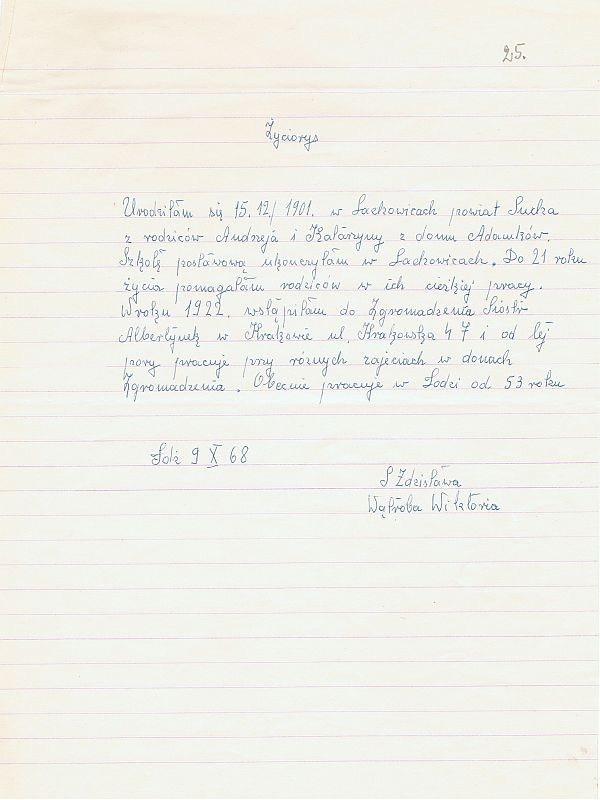 25.
Życiorys
Urodziłam się 15.12/1901. w Lachowicach powiat Sucha
z rodziców Andrzeja i Katarzyny z domu Adamków.
Szkołę postawową ukonczyłam w Lachowicach. Do 21 roku
życia pomagałam rodziców w ich cieżkiej pracy.
W roku 1922. wstąpiłam do Zgromadzenia Sióstr
Albertynek w Krakowie ul, Krakowska 47 i od tej
pory pracuje przy róznych zajeciach w domach
Zgromadzenia. Obecnie pracuje w Łodzi od 53 roku
Łodż 9 X 68
S Zdzisława
Wątroba Wiktoria